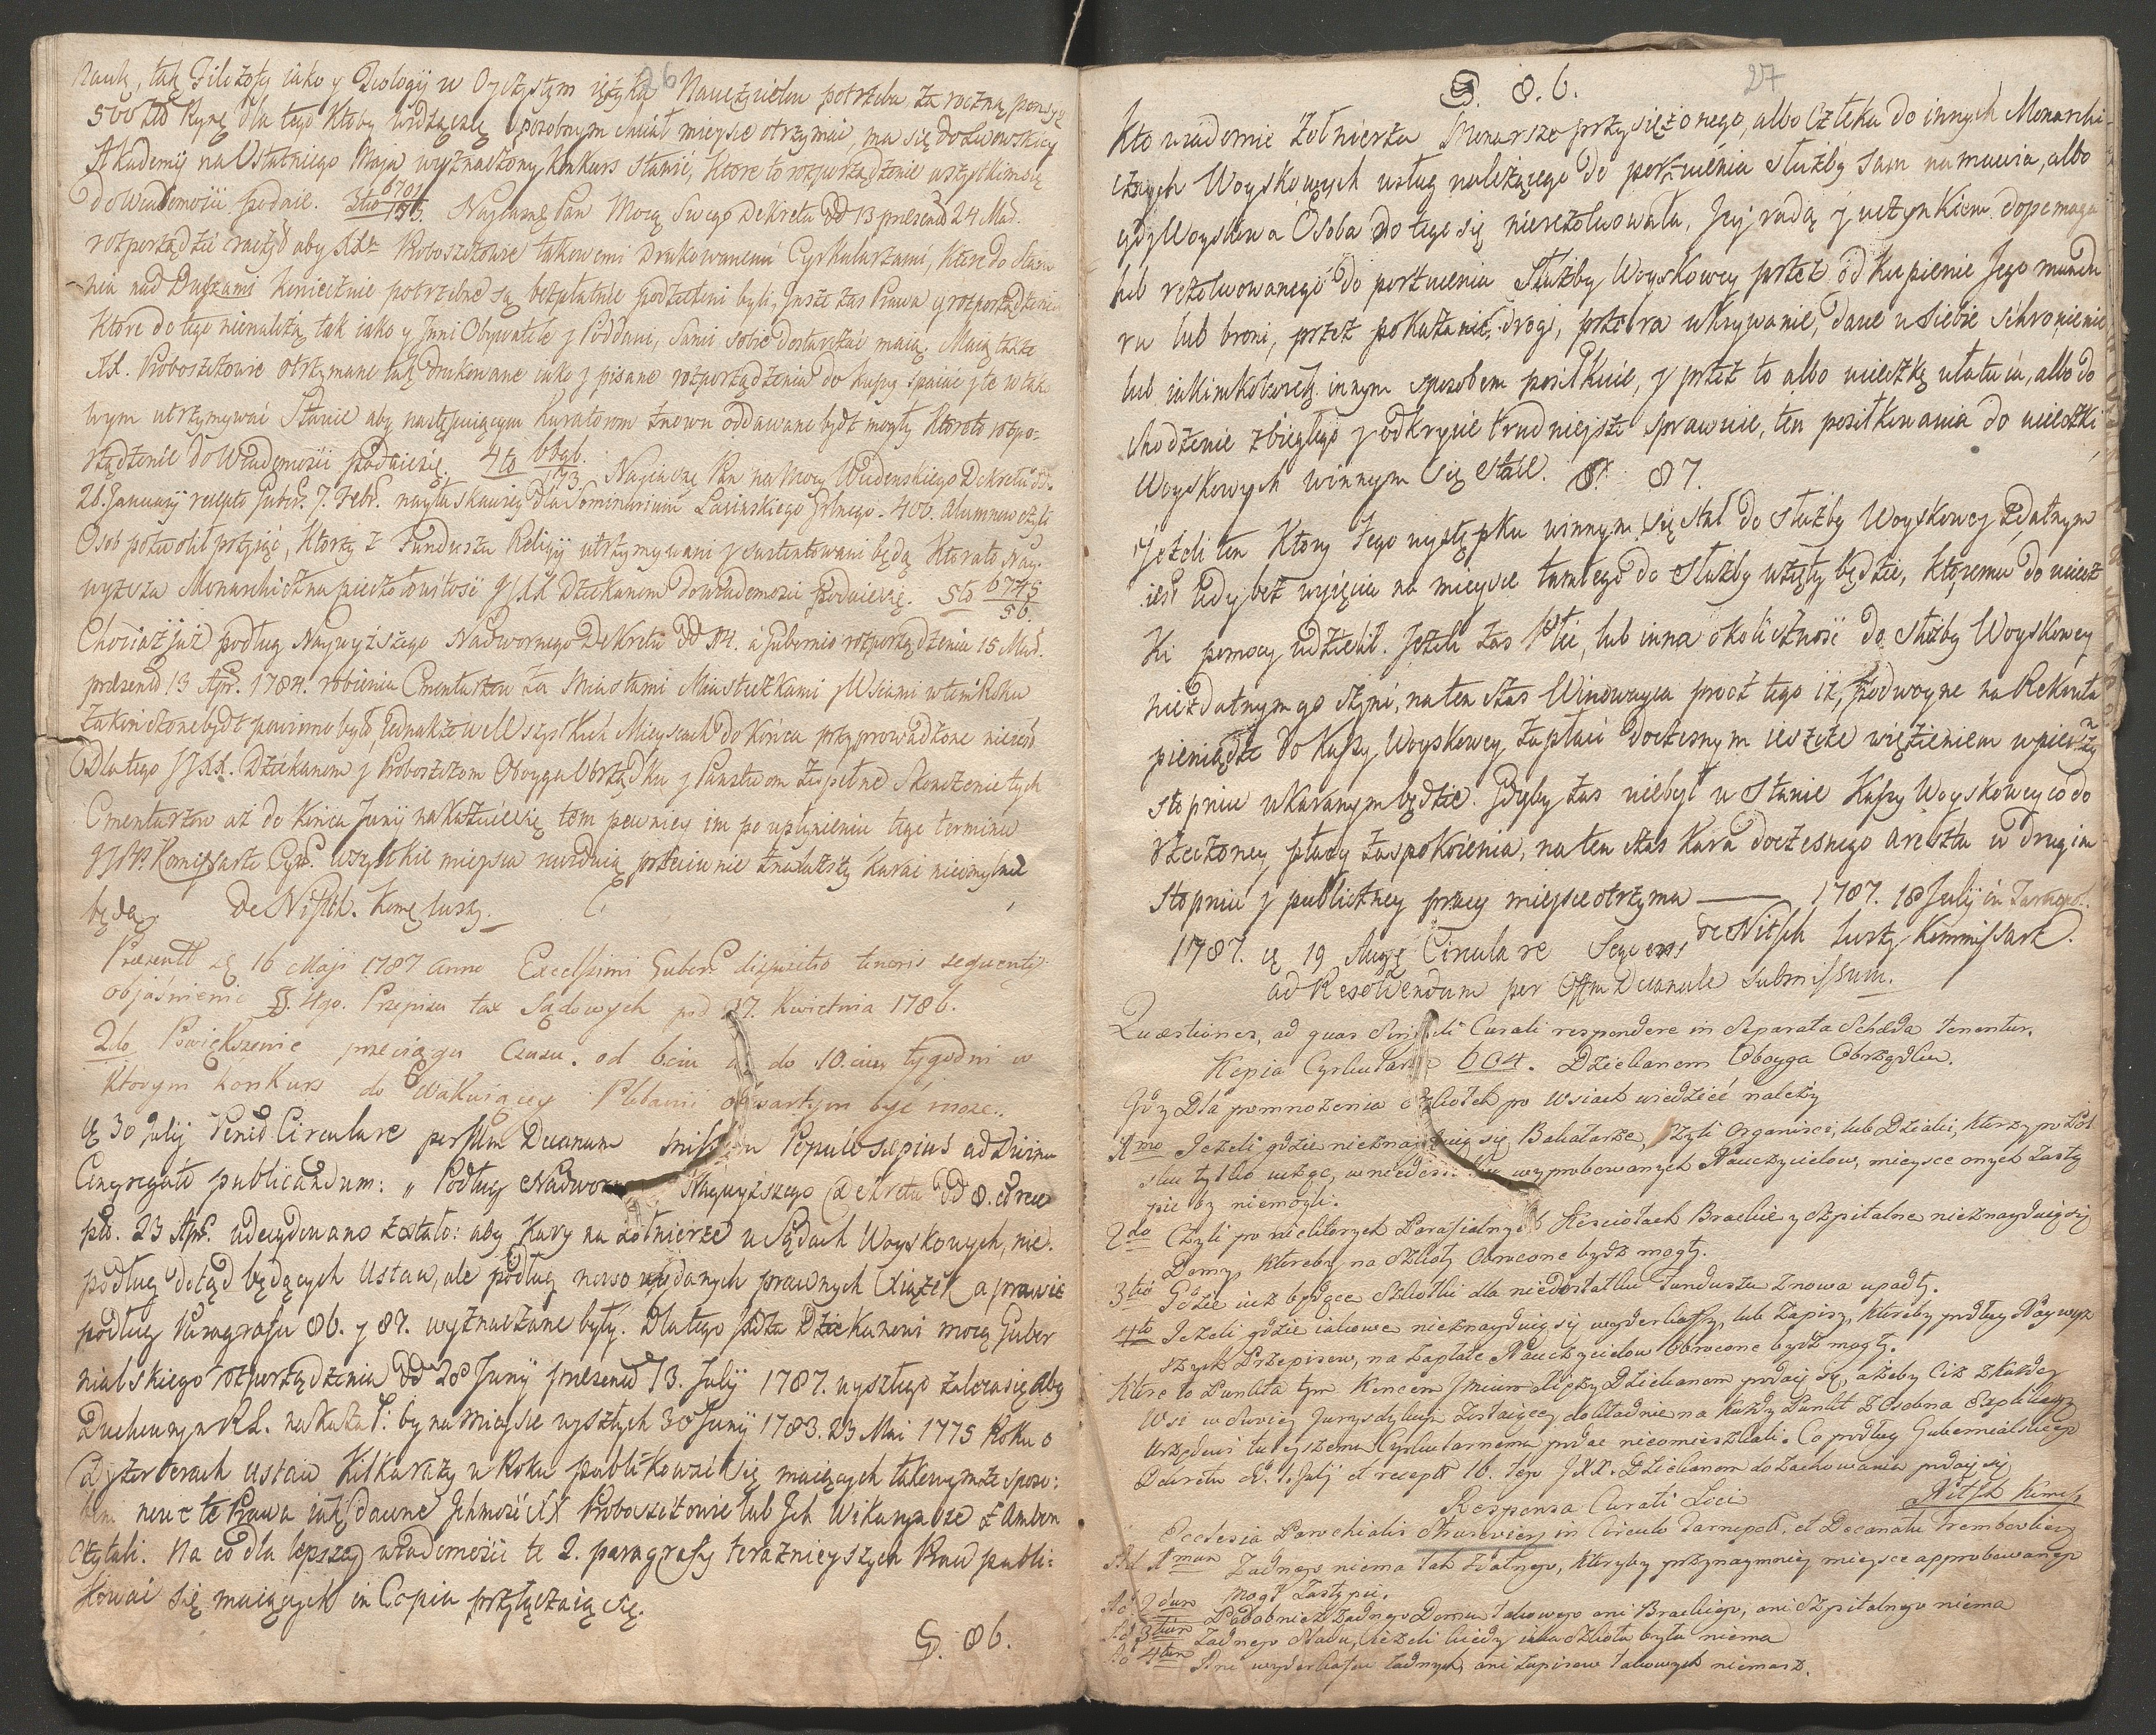 26
Nauk, tak Filozofij iako y Teologij w Oyczystym ięzyku Nauczycielow potrzeba za roczną pensyę
500 Zło Ryn. dla tego Ktoby wrdzącz się sposobnym chciał mieysce otrzymać, ma się do Lwowskiey
Akademij na Ostatniego Maja wyznaczony Konkurs stawić, Ktore to rozporządzenie wszystkim się
do wiadomości podaie. 3tio 6701/155. Nayiaśn. Pan Mocą Swego Dekretu dd 13 praesent 24 Mad.
rozporządzić raczył aby XX. Proboszczowie takowemi Drukowanemi Cyrkularzami, Ktore do Stara
nia nad Duszami koniecznie potrzebne są bezpłatnie podzieleni byli, Insze zas Prawa y rozporządzenia
Ktore do tego nienależą, tak iako y Inni Obywatele y Poddani, Sami sobie dostarczać maią. Maią także
XX. Proboszczowie otrzymane tak drukowane iako y pisane rozporządzenia do kupy spaiać y te w tako
wym utrzymywać Stanie aby następuiącym Kuratorom znowu oddawane bydz mogły Ktore to rozpo-
rządzenie do Wiadomości podaie się. 4to 6898/173 Nayiaśn. Pan na Mocy Wiedenskiego Dekretu dd.
26. January recepto Guber. 7. Febr. nayłaskawiey dla Seminarium Łacinskiego Grlnego. 400. Alumnow czyli
Osob pozwolił przyiąć, Ktorzy z Funduszu Religij utrzymywani y sustentowani będą Ktora to Nay-
wyższa Monarchiczna pieczołowitość JJXX Dziekanom do wiadomości podaie się. 5to 6745/56.
Chociaż już podług Naywyższego Nadwornego Dekretu dd 14. á Gubernio rozporządzenia 15 Mad.
praesent 13 Apr. 1784. robienia Cmentarzow za Miastami Miasteczkami y Wsiami w tem Roku
zakończone bydz powinno było, Jednakże w Wszystkich Mieyscach do Końca przyprowadzone nie są.
Dla tego JJXX. Dziekanom y Proboszczom Oboyga Obrządku y Panstwom zupełne Skończenie tych
Cmentarzow aż do Końca Junij nakazuie się tem pewniey im po upłynieniu tego terminu
JJPP. Komissarze Cyr. wszystkie mieysca zwiedzią przeciwnie znalazłszy Karać nieomylnie
będą. De Nitsch. Komisarz.
Praesentt 16 Maji 1787 Anno Excelsissimi Gubern. dispositio tenoris sequentis
objaśnienie §§. 4go. Przepisu tax Sądowych pod 27. Kwietnia 1786.
2do Powiększenie przeciągu Czasu. od 6ciu aż do 10.ciu tygodni w
Ktorym konkurs do Wakuiącey Plebanij otwartym być może..
30 Julij Venit Circulare per Illm Decanum Populo saepius ad Divina
Congregato publicandum: „ Podług Nadwornego Naywyższego Dekretu dd 8. et rece
pto. 23 Apr. udecydowano zostało: aby Kary na żołnierze w Sądach Woyskowych, nie
podług dotąd będących Ustaw, ale podług nowo wydanych prawnych Xiążek a prawie
podług Paragrafu 86. y 87. wyznaczane były. Dla tego Xdza Dziekanowi mocą Guber
nialskiego rozporządzenia dd 28 Junij praesent 13. Julij 1787. wyszłego zaleca się aby
Duchownym RL. nakazał: by na mieysce wyszłych 30 Junij 1783. 23 Mai 1775 Roku o
Dyzerterach Ustaw Kilka razy w Roku publikować się maiących takowymże sposo-
bem nowe te Prawa iak dawne Jchmość XX Proboszczowie lub Jch Wikaryusze z Ambon
Czytali. Na co dla lepszey wiadomości te 2. paragrafy teraznieyszych Praw publi-
kować się maiących in Copia przyłączaią się.
§. 86.
27
§. 8.6.
Kto wiadomie żołnierza Monarsze przysiężonego, albo Człeka do innych Monarchi-
cznych Woyskowych usług należącego do porzucenia służby sam namawia, albo
gdy Woyskowa Osoba do tego się niezezolwowała, Jey radą y uczynkiem dopomaga
lub rezolwowanego do porzucenia Służby Woyskowey przez odkupienie Jego mundu
ru lub broni, przez pokazanie drogi, przebra ukrywanie, daie u Siebie schronienie
lub iakimkolwiek innym sposobem posiłkuie, y przez to albo ucieczkę ułatwia, albo do
chodzenie zbiegłego y odkrycie trudnieysze sprawuie, ten posiłkowania do ucieczki
Woyskowych winnym się staie. §. 87.
Jeżeli ten Ktory tego występku winnym się stał do służby Woyskowey zdatnym
iest tedy bez wyięcia na mieysce tamtego do służby wzięty będzie, Ktoremu do uciecz
ki pomocy udzielił. Jeżeli zas Płeć, lub inna okoliczność do służby Woyskowey
niezdatnym go czyni, na ten czas Winowayca procz tego iż, podwoyne na Rekruta
pieniądze do Kassy Woyskowey zapłaci doczesnym ieszcze więzieniem w pierwszy
stopniu ukaranym będzie. Gdyby zas niebył w stanie Kassy Woyskowey co do
rzeczoney płacy zaspokoienia, na ten czas Kara doczesnego aresztu w drugim
stopniu y publiczney pracy mieysce otrzyma — 1787. 18 Julij in Tarnopol.
1787. 19 Aug. Circulare Sequens de Nitsch Kommissarz.
ad Resolvendum per Offm Decanale submissum.
Quaestiones, ad quas Singuli Curati respondere in Separata Scheda tenentur.
Kopia Cyrkularza 604. Dziekanom Oboyga Obrządku.
Gdy Dla pomnożenia szkołek po Wsiach wiedzieć należy
1mo Jeżeli gdzie nieznayduią się Bakałarze, Czyli Organisci, lub Dziaki, ktorzy po Pol
sku tylko uczą, w niedostatku wyprobowanych Nauczycielow, mieysce onych zastą
pić by niemogli.
2do Czyli po niektorych Parafialnych Kościołach Brackie y Szpitalne nieznayduią się
Domy, ktoreby na Szkoły obrocone bydz mogły.
3tio Gdzie iuż będące Szkołki dla niedostatku Funduszu znowu upadły.
4to Jeżeli gdzie iakowe nieznayduią się wyderkaffy, lub Zapisy, ktoreby podług Naywyż
szych Przepisow, na zapłatę Nauczycielow obrocone bydz mogły.
Ktore to Punkta tym koncem Jmciom Xięży Dziekanom podaią się, ażeby Ciż z każdey
Wsi w Swoiey Jurysdykcij zostaiącey dokładnie na każdy Punkt z Osobna Explikacyą
Urzędowi tuteyszemu Cyrkularnemu podać nieomieszkali. Co podług Gubernialskiego
Decretu dd. 1. Julij et recepto 16. tego JXX. Dziekanom do zachowania podaie się
Nitsch Komiss.
Responsa Curati Loci
Ecclesia Parochialis Strusoviens in Circulo Tarnopol. et Decanatu Trembovliens
Ad 1mum Żadnego niema tak zdatnego, ktoryby przynaymniey mieysce approbowanego
mogł zastąpić.
Ad 2dum Podobnież żadnego Domu takowego ani Brackiego, ani Szpitalnego niema
Ad 3tium Żadnego śladu, ieżeli kiedy iaka Szkoła była niema
Ad 4tum Ani wyderkaffow żadnych, ani zapisow takowych niemasz.